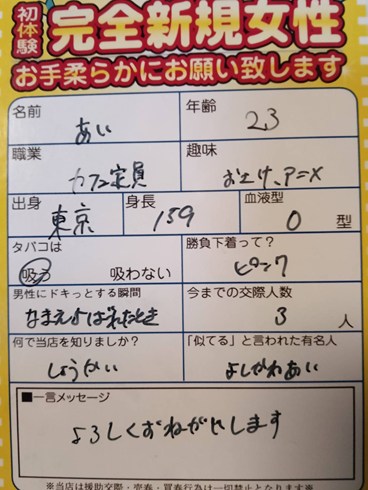 初体験
完全新規女性
お手柔らかにお願い致します
名前 あい
年齢 23
職業 カフェ定員
趣味 おえけ、アニメ
出身 東京
身長 159
血液型 O 型
タバコは 吸う 吸わない
勝負下着って? ピンク
男性にドキっとする瞬間 なまえよばれたとき
今までの交際人数 3 人
何で当店を知りましたか? しょうかい
「似てる」と言われた有名人 よしかわあい
■一言メッセージ
よろしくおねがいします
※当店は援助交際・売春・買春行為は一切禁止となります※